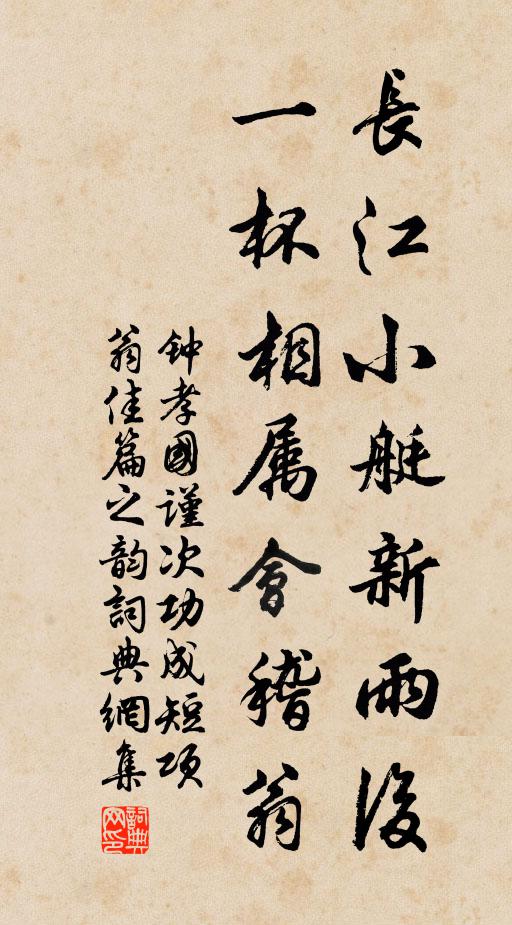 長江小艇新雨後
一杯相属會稽翁
钟孝國謹次功成短項
翁佳篇之韵詞典網集
詞典网印